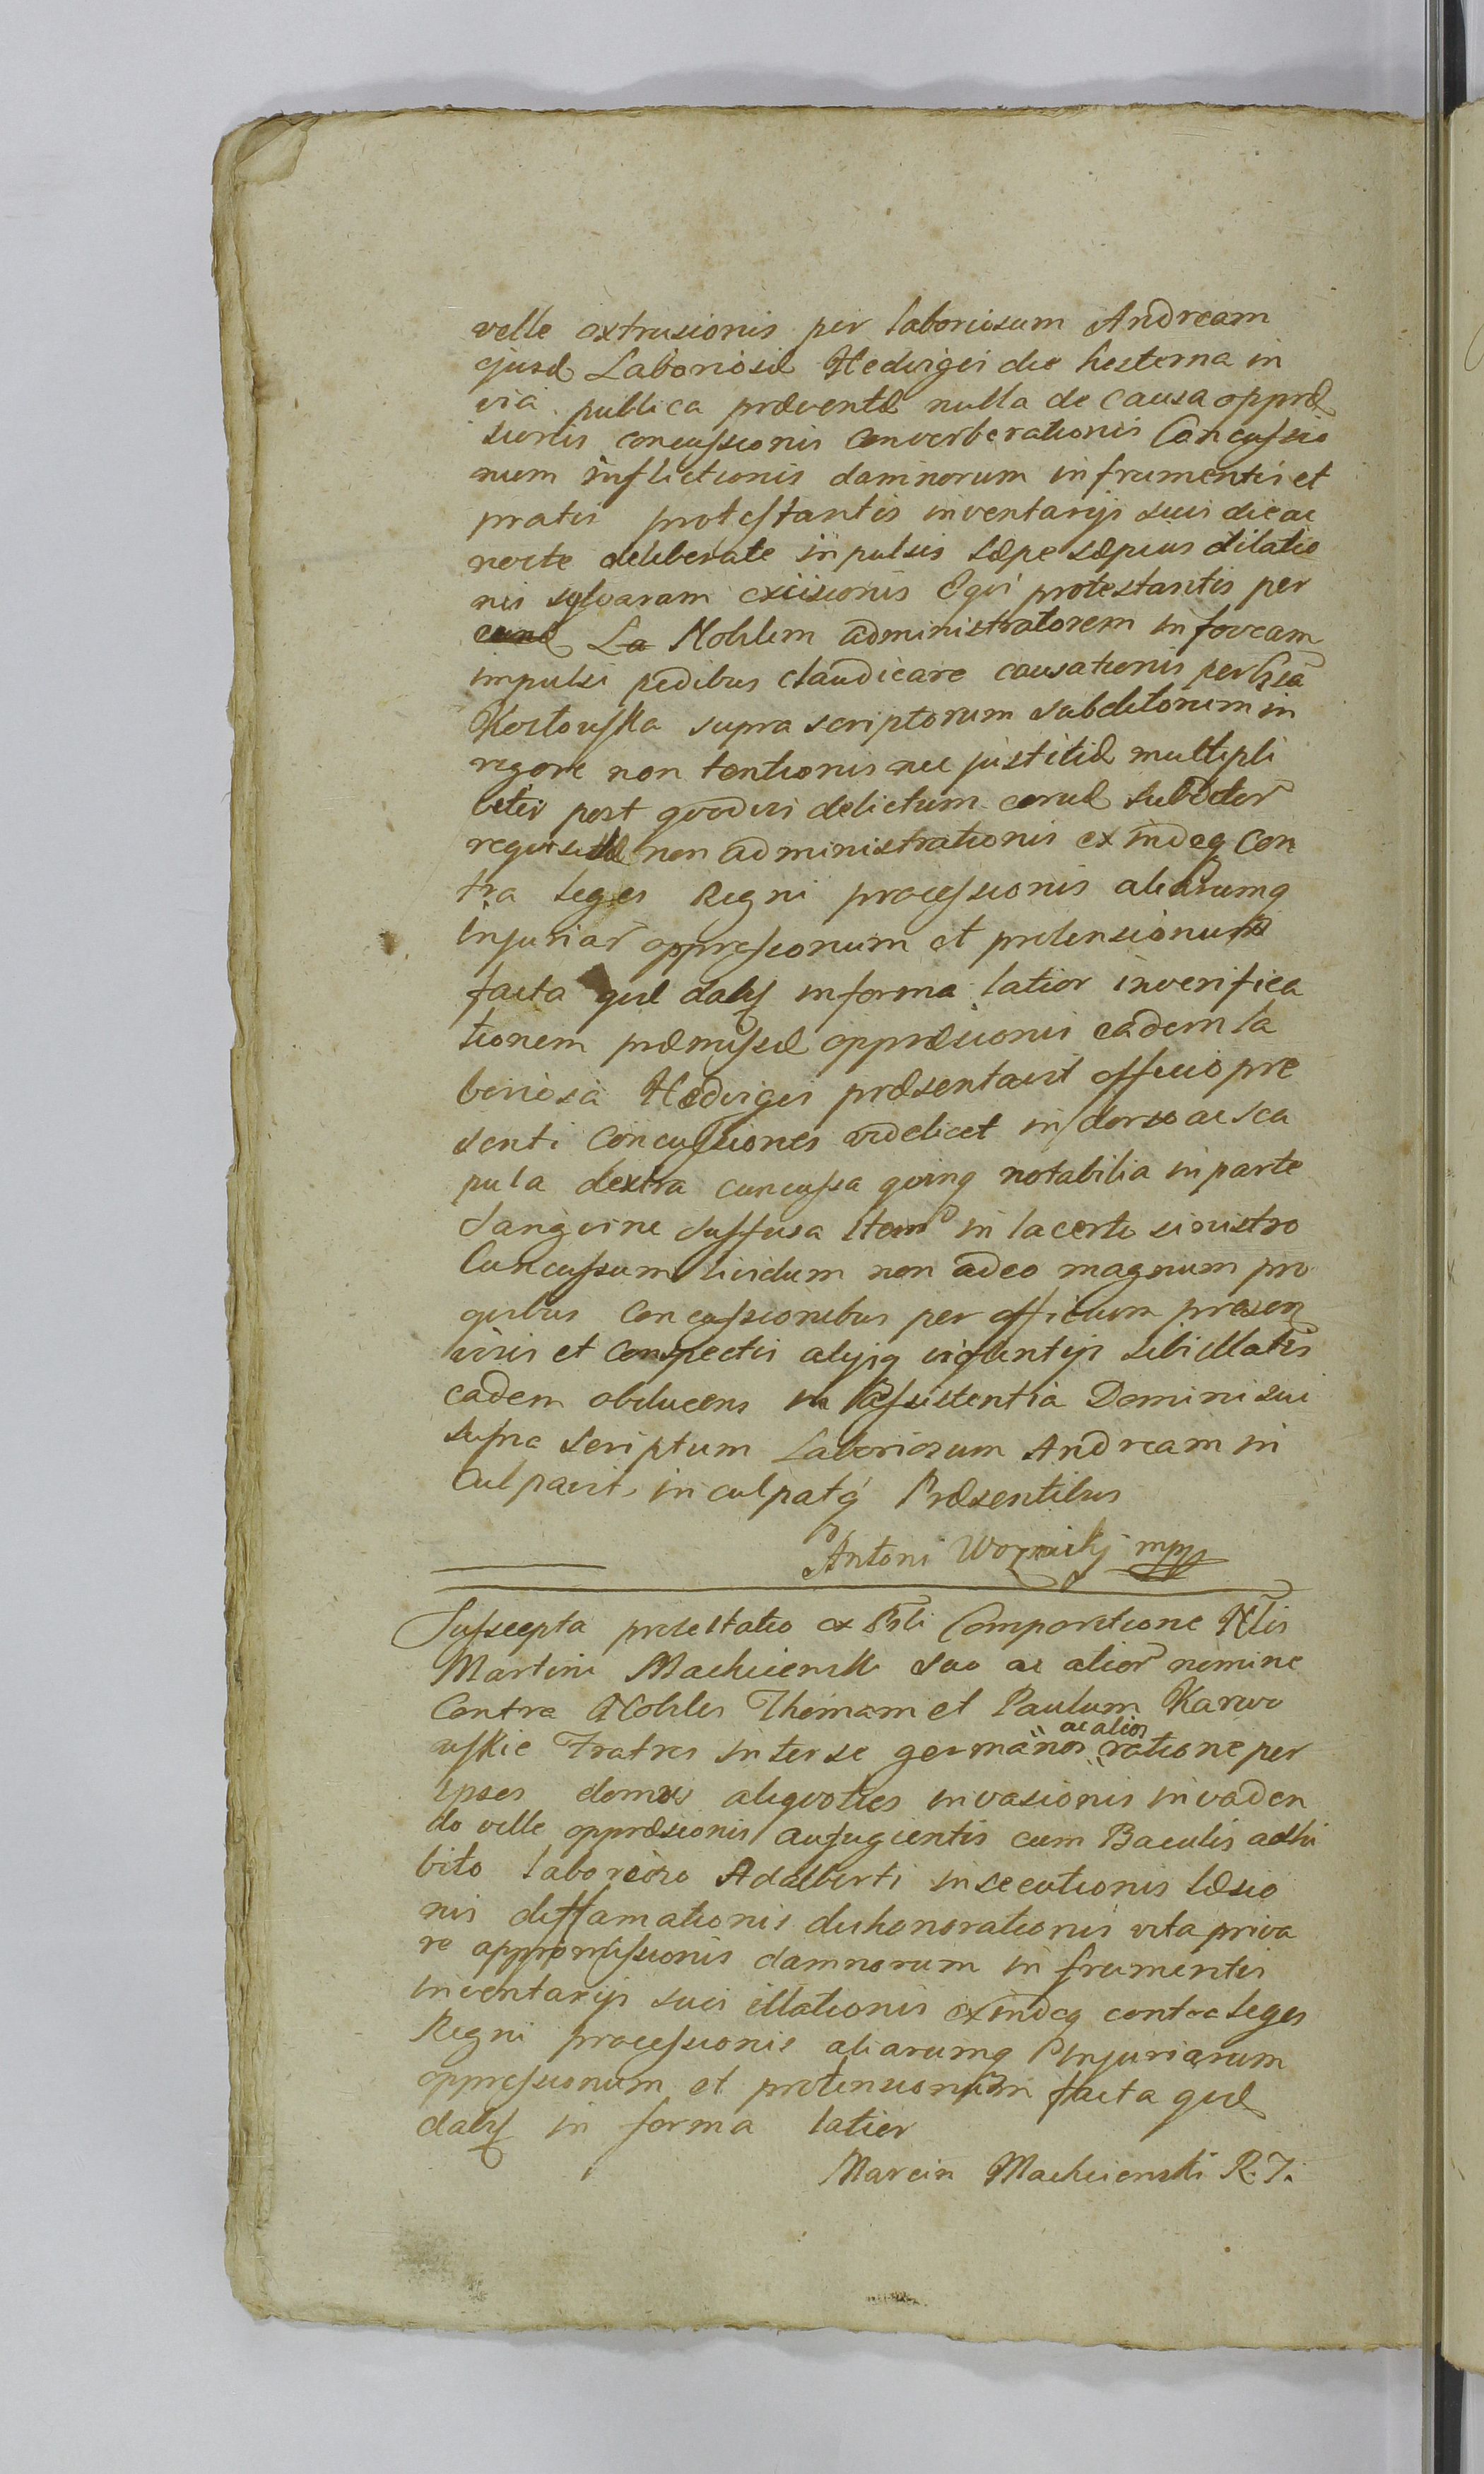 velle extrusionis per laboriosum Andream
ejusd Laboriosæ Hedvigis die hesterna in
via publica præventæ nulla de causa oppræ
sionis concussionis converberationis Concussio
num inflictionis damnorum in frumentis et
pratis protestantis inventarijs suis die ac
nocte deliberate inpulsis sæpe sæpius dilatio
nis sylvarum excisionis Eqvi protestantis per
La Nobilem administratorem in foveam
impulsi pedibus claudicare causationis per
supra scriptorum subditorum in
rigore non tentionis nec justitiæ multipli
citer post qvodvis delictum subditor
reqvisitæ non administrationis exindeq con
tra leges Regni processionis aliarumq
Injuriar oppressionum et prætensionum
facta qvæ dabit in forma latior in verifica
tionem præmissæ oppræsionis eadem la
boriosa Hedvigis præsentavit officio præ
senti concussiones videlicet in dorso ac sca
pula dextra concussa qvinq notabilia in parte
Sangvine suffusa item in lacerto sinistro
Concussum lividum non adeo magnum pro
qvibus concussionibus per officium præsen
visis et conspectis alijsq violentijs sibi illatis
eadem obducens in assistentia Domini sui
supra scriptum Laboriosum Andream in
culpavit, inculpatq Præsentibus
Antoni Woznicky mpp
Suscepta protestatio ex Psli Comparitione Nlis
Martini Machcienski suo ac alior nomine
Contra Nobiles Thomam et Paulum Karwo
wskie Fratres inter se germanos ratione per
ac alios
ipsos domus aliqvoties invasionis invaden
do velle oppræsionis aufugientis cum Baculis adhi
bito laborioso Adalberti insecutionis læsio
nis diffamationis dishonorationis vita priva
re appromissionis damnorum in frumentis
inventarijs suis illationis exindeq contra leges
Regni processionis aliarumq Injuriarum
oppressionum et prætensionum facta qvæ
dabit in forma latior
Marcin Machcienski R. T.